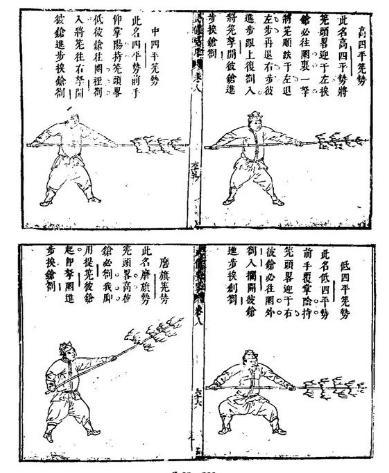 高四平筅勢
此名高四平勢將
筅頭畧迎于左挨
鎗必往圈裏一拏
將筅順跌于左退
左步再退右步彼
進步跟上復劄入
將筅拏開彼鎗進
步挨鎗劄
卷八
中四平筅勢
此名四平勢前手
仰拿陽持筅頭畧
低彼鎗往圈裡劄
入將筅往右拏開
彼鎗進步挨鎗劄
低四平筅勢
此名低四平勢
前手覆拿陰持
筅頭畧迎于右
彼鎗必往圈外
劄入攔開彼鎗
進步挨劄
卷八
六十六
磨旗筅勢
此名磨旗勢
筅頭畧高
鎗必劄我脚
用提筅彼鎗
起即拏圈進
步挨鎗劄